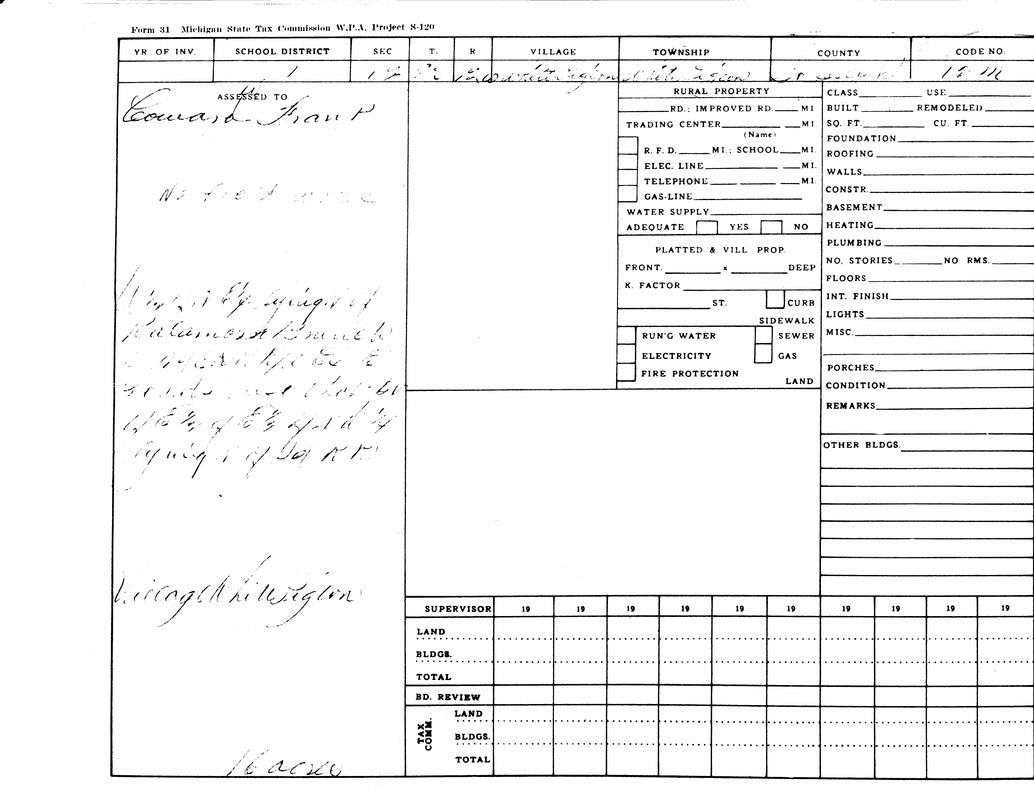 Form 31 Michigan State Tax Commission W.P.A. Project S-120
YR OF INV. SCHOOL DISTRICT SEC T. R VILLAGE TOWNSHIP COUNTY CODE NO.
1
ASSESSED TO
Frank
No field work
lying of
Kalamazoo Branch
of E ½ of
lying of
Village White Pigeon
16 acres
RURAL PROPERTY
RD.; IMPROVED RD. MI.
TRADING CENTER MI.
(Name)
R. F. D. MI.; SCHOOL MI.
ELEC. LINE MI.
TELEPHONE MI.
GAS-LINE
WATER SUPPLY
ADEQUATE YES NO
PLATTED & VILL PROP.
FRONT. x DEEP
K. FACTOR
ST. CURB
SIDEWALK
RUN'G WATER SEWER
ELECTRICITY GAS
FIRE PROTECTION
LAND
CLASS USE
BUILT REMODELED
SQ. FT. CU. FT.
FOUNDATION
ROOFING
WALLS
CONSTR.
BASEMENT
HEATING
PLUMBING
NO. STORIES NO RMS.
FLOORS
INT. FINISH
LIGHTS
MISC.
PORCHES
CONDITION
REMARKS
OTHER BLDGS.
SUPERVISOR 19 19 19 19 19 19 19 19 19 19
LAND
BLDGS.
TOTAL
BD. REVIEW
TAX COMM.
LAND
BLDGS.
TOTAL